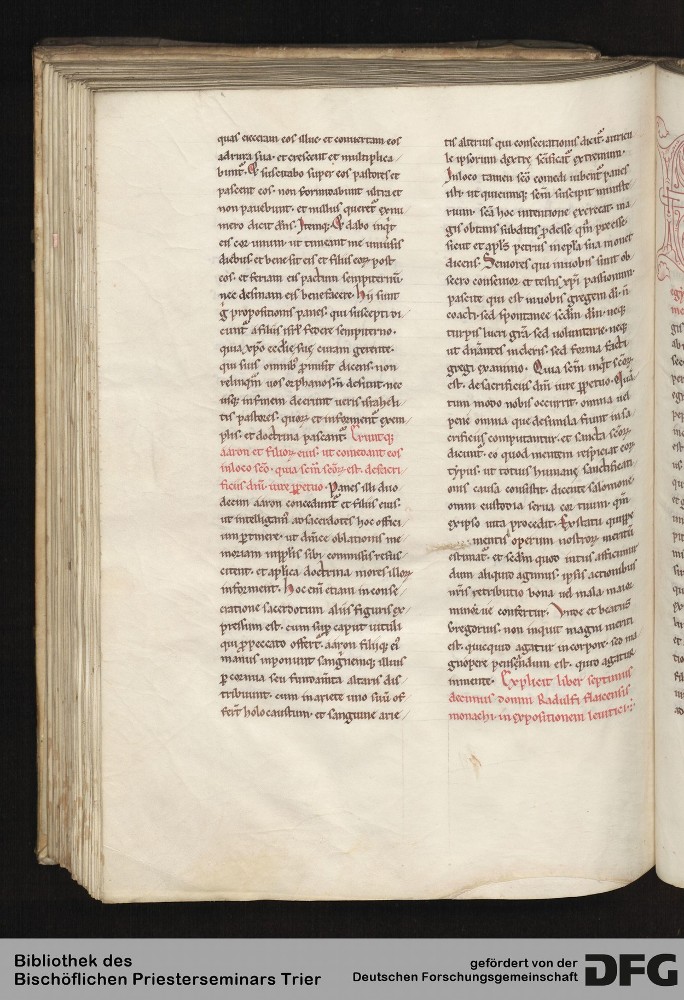 quas eieceram eos illuc· et convertam eos
ad rura sua· et crescent et multiplica
bunt᷑· Et suscitabo super eos pastores et
pascent eos· non formidabunt ultra et
non pavebunt· et nullus queret᷑ ex nu
mero dicit dn̄s· Itemq; Et dabo inq̇t
eis cor unum ut timeant me universis
diebus et bene sit eis et filiis eoꝝ post
eos· et feriam eis pactum sempiternū·
nec desinam eis benefacere· Hij sunt
ꝓpositionis panes· qui suscepti di
cunt᷑ a filiis isrl̄ federe sempiterno·
quia xp̄o eccl̄ie suę curam gerente·
qui suis omnib; ꝓmisit dicens· non
relinquā vos orphanos· ñ desunt· nec
usq; in finem deerunt veris israheli
tis pastores· quoꝝ et informent᷑ exem
plis· et doctrina pascant᷑· Eruntq;
aaron et filioꝝ eius· ut comedant eos
in loco sc̄o· quia sc̄m sc̄oꝝ est· de sacri
ficiis dn̄i iure ꝑpetuo· Panes illi duo
decim aaron concedunt᷑ et filiis eius·
ut intelligant᷑ ad sacerdotes hoc offici
um ꝑtinere· ut divinę oblationis me
moriam in pplīs sibi commissis resus
citent· et aplīca doctrina mores illoꝝ
informent· Hoc enī etiam in conse
cratione sacerdotum aliis figuris ex
pressum est· cum sup̄ caput vituli
qui ꝓ peccato offert᷑· aaron filiiq; ei᷒
manus inponunt sanguinemq; illius
ꝑ cornua seu fundam̄ta altaris dis
tribuunt· cum in ariete uno suū of
fert holocaustum· et sanguine arie
tis alterius qui consecrationis dicit᷑· auricu
le ipsorum dextrę sc̄ificat᷑ extremum·
In loco tamen sc̄o comedi iubent᷑ panes
isti· ut quicumq; sc̄m suscipit ministe
rium· sc̄a hoc intentione exerceat· ma
gis optans subditis ꝓdesse qm̄ preesse·
sicut et apl̄s petrus in epl̄a sua monet
dicens· Seniores qui in vobis sunt ob
secro consenior et testis xp̄i passionum·
pascite qui est in vobis gregem dī· ñ
coacti· sed spontanee sc̄dm dīn· neq;
turpis lucri gr̄a· sed voluntarie· neq;
ut dn̄antes in cleris· sed forma facti
gregi ex animo· Quia sc̄m inq̇t sc̄oꝝ
est· de sacrificiis dn̄i iure ꝑpetuo· Quā
tum modo nobis occurrit· omnia vel
pene omnia que de simila fiunt in sa
crificiis computantur· et sancta sc̄oꝝ
dicunt᷑· eo quod mentem respiciat eoꝝ
typus· ut totius humanę sanctificati
onis causa consistit· dicente salomone·
omni custodia serva cor tuum· qm̄
ex ipso vita procedit· Ex statu quippe
mentis operum nostroꝝ meritū
estimat᷑· et sc̄dm quod intus afficimur
dum aliquid agimus· ipsis actionibus
nr̄is retributio bona vel mala· maior
minor ve confertur· Inde et beatus
Gregorius· non inquit magni meriti
est· quicquid agatur in corpore· sed ma
gnopere pensandum est· quid agatur
in mente· Explicit liber septimus
decimus domni Radulfi flaicensis
monachi· in expositionem levitici·
Bibliothek des
Bischöflichen Priesterseminars Trier
gefördert von der
Deutschen Forschungsgemeinschaft
DFG